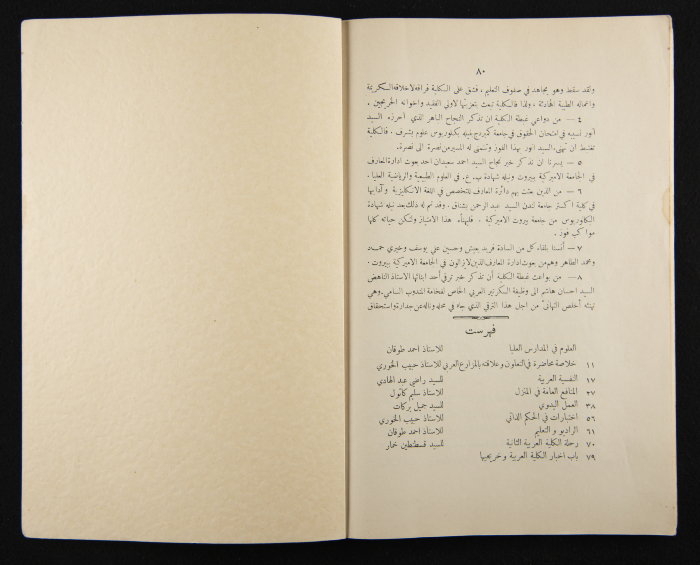 ٨٠
ولقد سقط وهو يجاهد في صفوف التعليم . فشق على الكلية فراقه لاخلاقه الكريمة
واعماله الطيبة الخالدة ، ولذا فالكلية تبعث بتعزيتها لاولي الفقيد واخوانه الخريجين .
٤ — من دواعي غبطة الكلية ان تذكر النجاح الباهر الذي احرزه السيد
انور نسيبه في امتحان الحقوق في جامعة كمبردج بنيله بكلوريوس علوم بشرف . فالكلية
تغتبط ان تهنيء السيد انور بهذا الفوز وتتمنى له المسير من نصرة الى نصرة.
٥ — يسرنا ان نذكر خبر نجاح السيد احمد سعيدان احد بعوث ادارة المعارف
في الجامعة الاميركية ببيروت ونيله شهادة ب . ع . في العلوم الطبيعية والرياضية العليا .
٦ — من الذين بعثت بهم دائرة المعارف للتخصص في اللغة الانكليزية وآدابها
في كلية اكستر جامعة لندن السيد عبد الرحمن بشناق . وقد تم له ذلك بعد نيله شهادة
البكلوريوس من جامعة بيروت الاميركية . فليهنأ هذا الامتياز ولتكن حياته كلها
مواكب فوز .
٧ — أنسنا بلقاء كل من السادة فريد عبتش وحسين علي يوسف وخيري حماد
ومحمد الطاهر وهم من بعوث ادارة المعارف الذين لا يزالون في الجامعة الاميركية ببيروت .
٨ — من بواعث غبطة الكلية أن تذكر خبر ترقي أحد ابنائها الاستاذ الناهض
السيد احسان هاشم الى وظيفة السكرتير العربي الخاص لفخامة المندوب السامي. وهي
تهنئه أخلص التهانئ من اجل هذا الترقي الذي جاء في محله وناله عن جدارة واستحقاق
فهرست
العلوم في المدارس العليا للاستاذ احمد طوقان
١١ خلاصة محاضرة في التعاون وعلاقته بالمزارع العربي للاستاذ حبيب الخوري
١٧ النفسية العربية للسيد راضي عبد الهادي
٢٧ المنافع العامة في المنزل للاستاذ سليم كاتول
٣٨ العمل اليدوي للسيد جميل بركات
٥٦ اختبارات في الحكم الذاتي للاستاذ حبيب الخوري
٦١ الراديو و التعليم للاستاذ احمد طوقان
٧٠ رحلة الكلية العربية الثانية للسيد قسطنطين خمار
٧٩ باب اخبار الكلية العربية وخريجيها